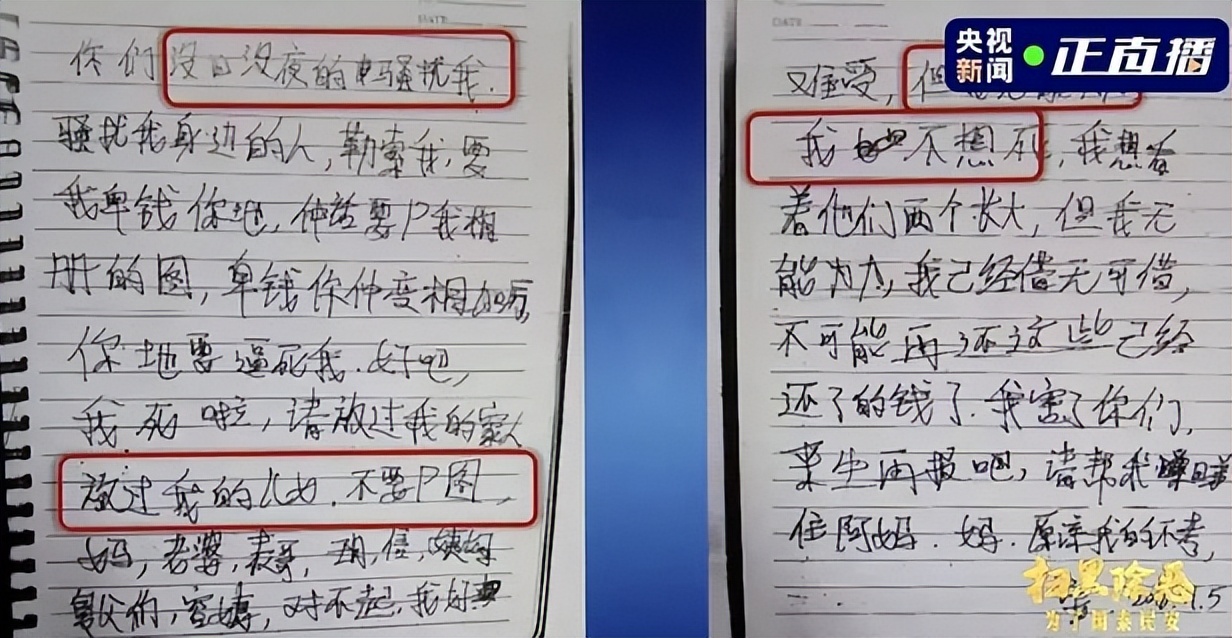 你们没日没夜的电骚扰我.
骚扰我身边的人,勒索我,要
我卑钱你地,仲话要P我相
册的图,卑钱你仲变相加厉,
你地要逼死我.好吧,
我死啦,请放过我的家人
放过我的儿女.不要P图,
妈,老婆,表哥,
舅父们,对不起,我好
央视新闻
正直播
难受,但
我 不想死,我想看
着他们两个长大,但我无
能为力,我己经借无可借,
不可能再还这些己经
还了的钱了.我害了你们,
来生再报吧,请帮我
住阿妈.妈.原谅我的不孝,
扫黑除恶
为了国泰民安